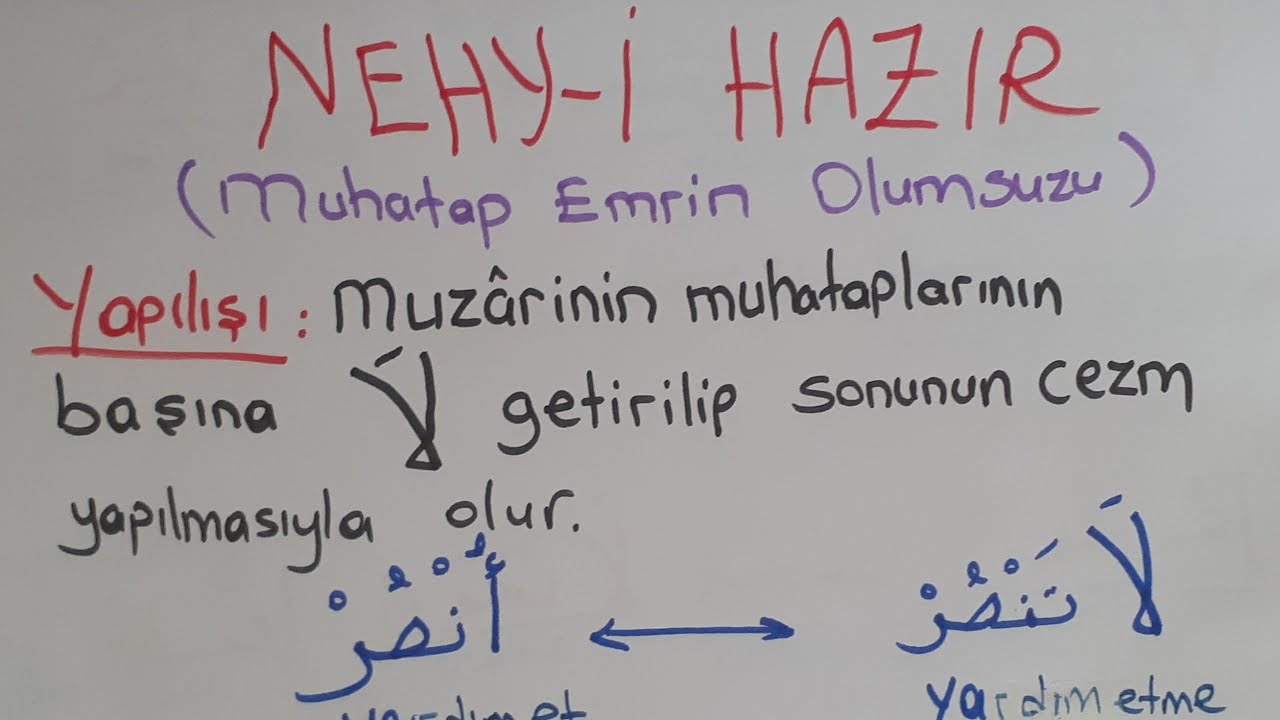 NEHY-İ HAZIR
(Muhatap Emrin Olumsuzu)
Yapılışı: Muzârinin muhataplarının
başına لَا getirilip sonunun cezm
yapılmasıyla olur.
أُنْصُرْ ↔ لَا تَنْصُرْ
yardım et yardım etme